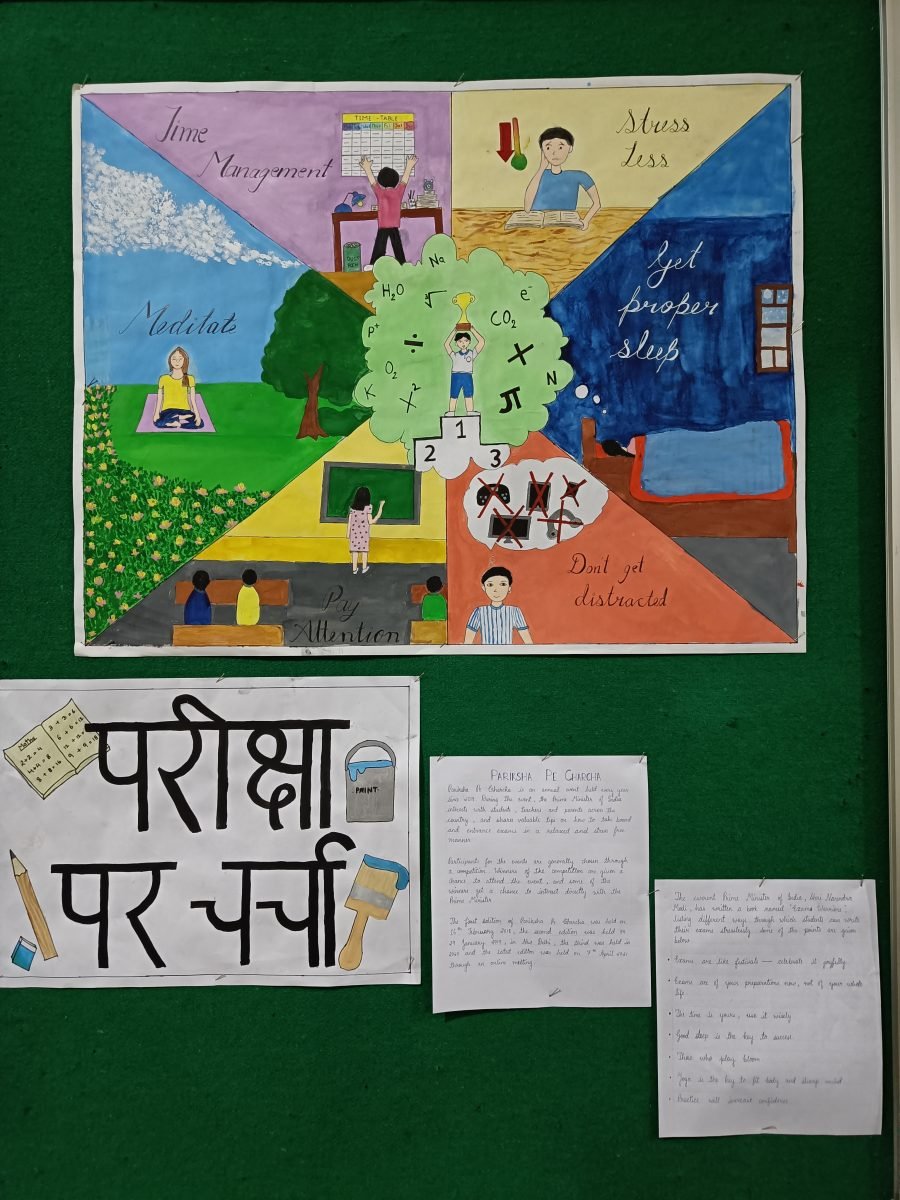 Time
Management
TIME - TABLE
DUST
BIN
Stress
Less
Meditate
Get
proper
sleep
Na
H₂O
√
e⁻
CO₂
P⁺
÷
O₂
×
K
X²
π
N
1
2
3
Pay
Attention
Don't get
distracted
परीक्षा
पर चर्चा
Maths
2+2=4
4+4=8
8+8=16
3+3=6
6+6=12
12+12=
9+9=18
PAINT
PARIKSHA PE CHARCHA
Pariksha Pe Charcha is an annual event held every year
since 2018. During the event, the Prime Minister of India
interacts with students, teachers and parents across the
country, and shares valuable tips on how to take board
and entrance exams in a relaxed and stress free
manner.
Participants for the events are generally chosen through
a competition. Winners of the competition are given a
chance to attend the event, and some of the
winners get a chance to interact directly with the
Prime Minister.
The first edition of Pariksha Pe Charcha was held on
16th February 2018, the second edition was held on
29 January 2019, in the third was held in
2020 and the latest edition was held on 7th April 2021
through an online meeting.
The current Prime Minister of India, Shri Narendra
Modi, has written a book named "Exams Warriors"
listing different ways through which students can write
their exams stresslessly. Some of the points are given
below
• Exams are like festivals — celebrate it joyfully
• Exams are of your preparations now, not of your whole
life.
• The time is yours, use it wisely
• Good sleep is the key to success.
• Those who play bloom
• Yoga is the key to fit body and sharp mind
• Practice will increase confidence